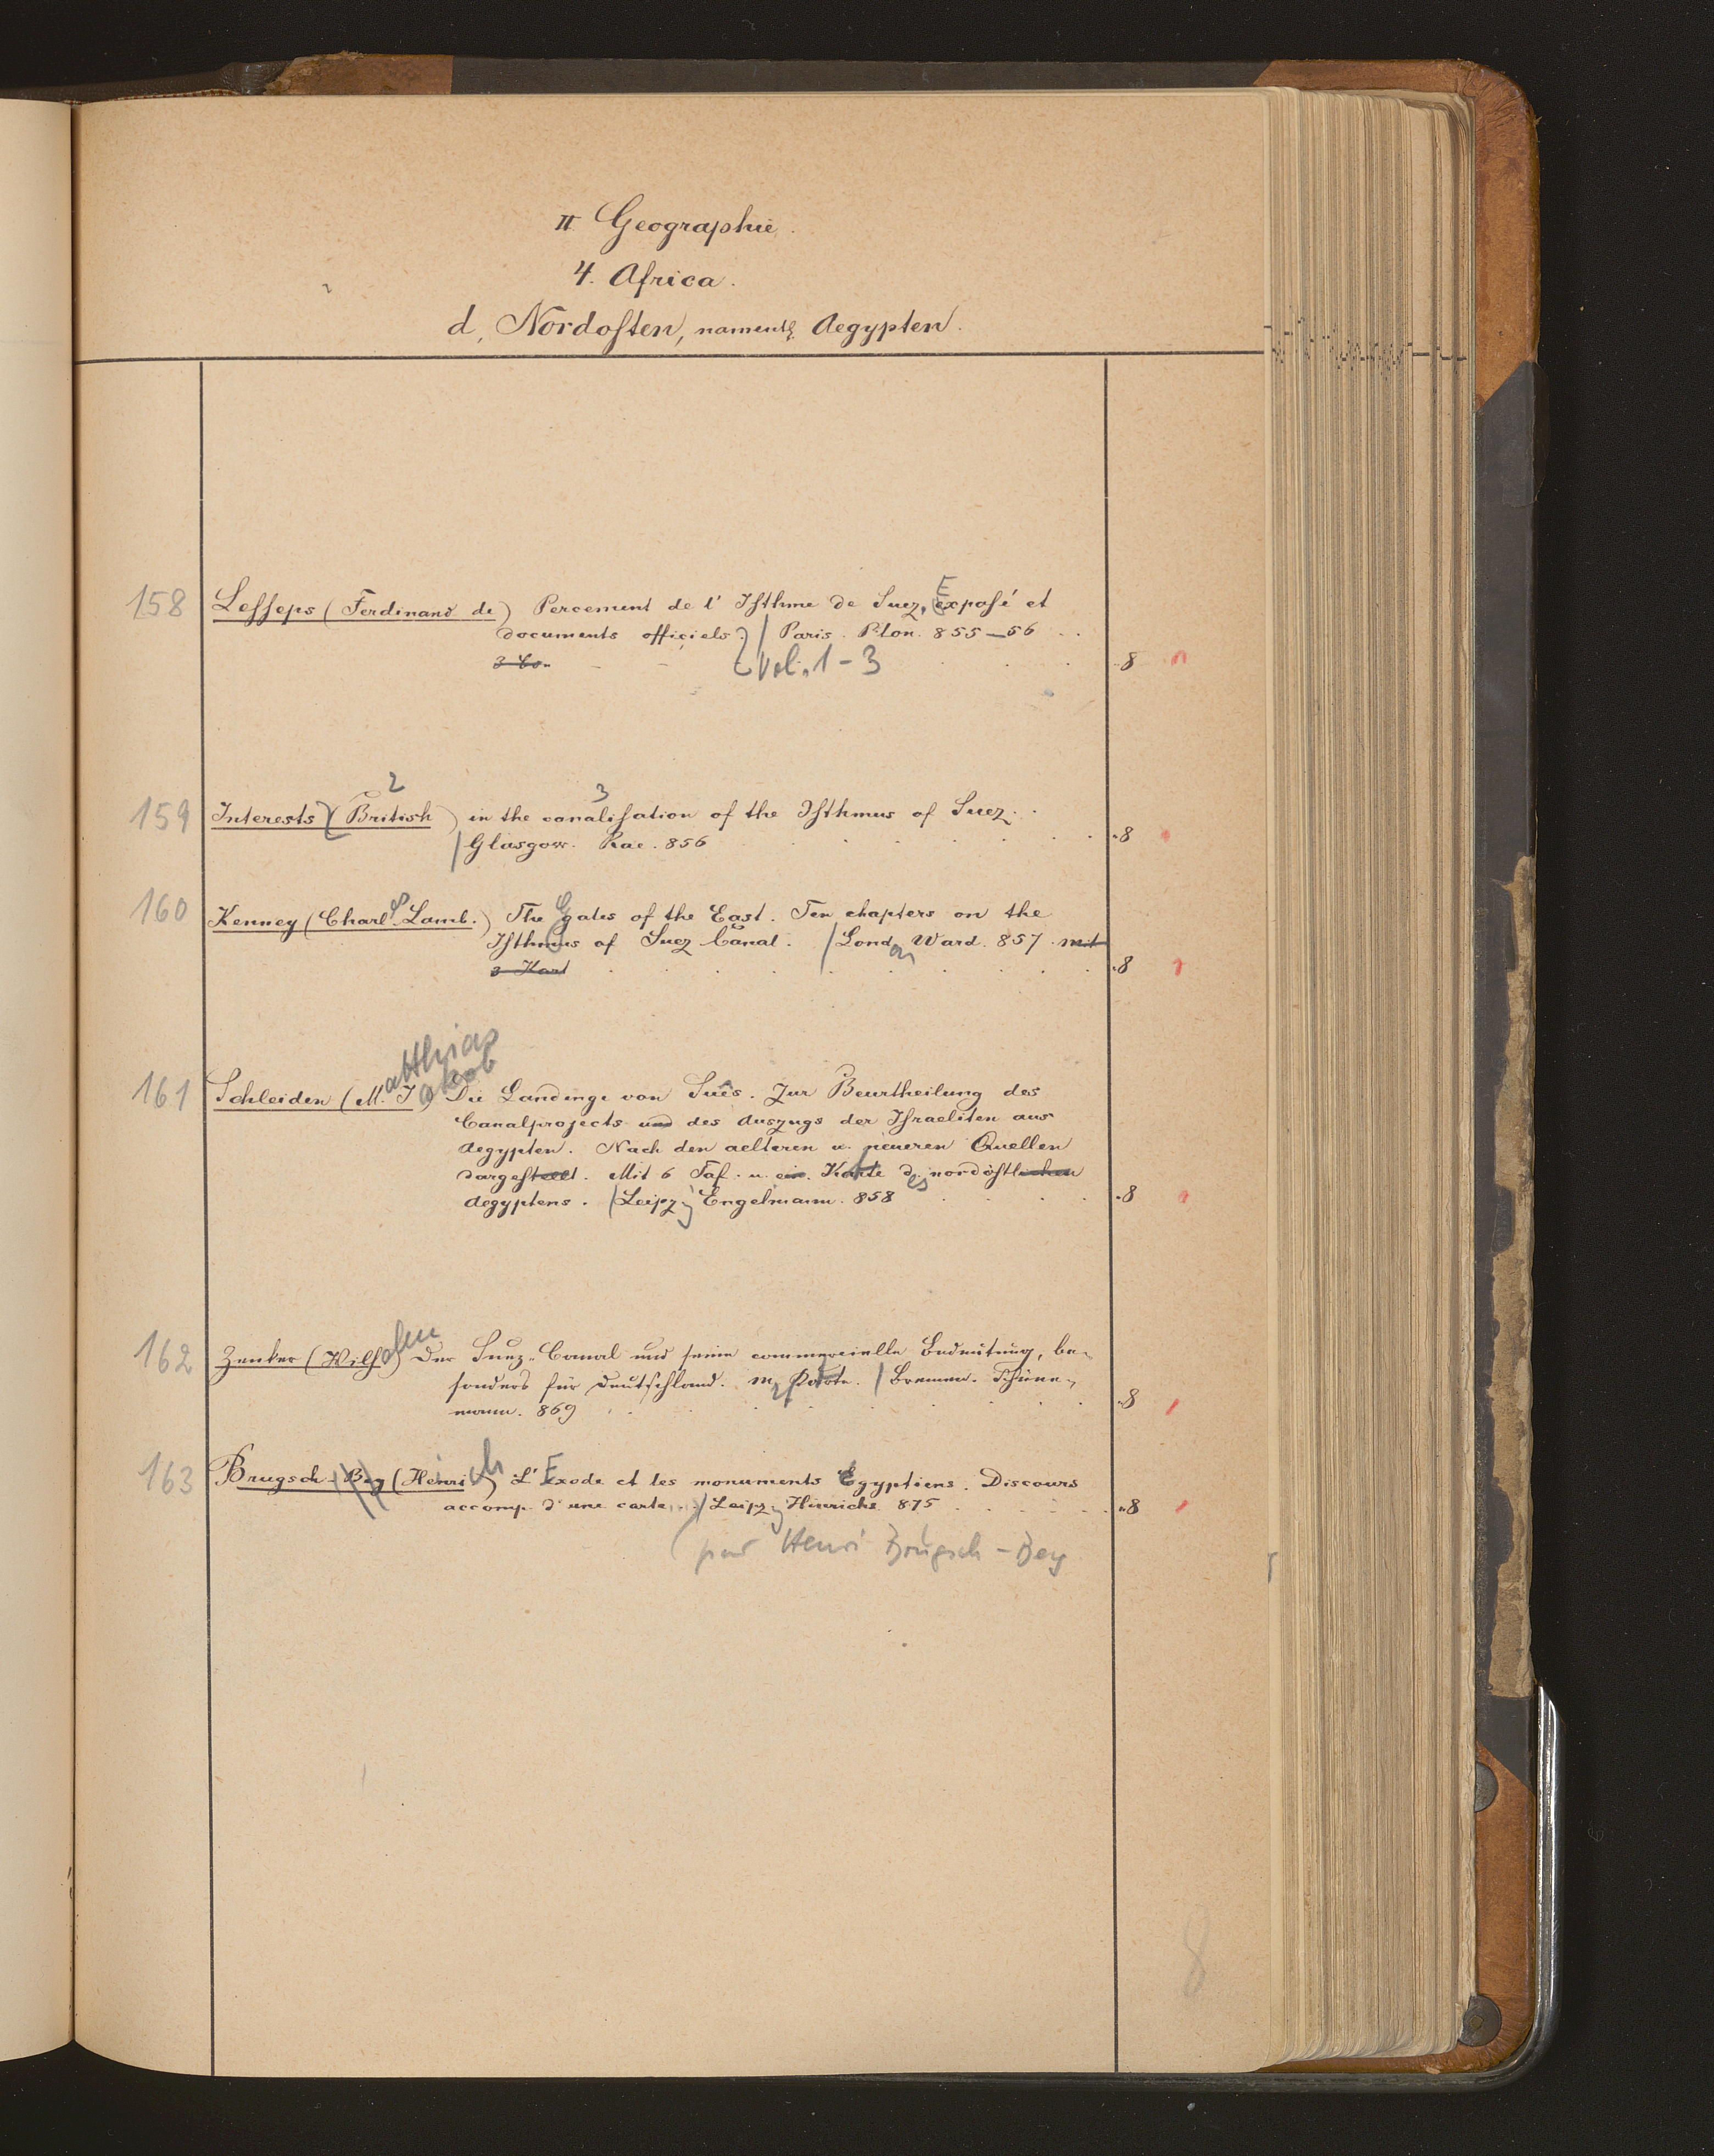 II Geographie.
4. Africa.
d, Nordosten, namentl. Aegypten.
158 Lesseps (Ferdinand de) Percement de l' Isthme de Suez, Exposé et
documents officiels. / Paris. Plon. 855-56 ..
3 Bo. Vol. 1-3 8
2 3
159 Interests (British) in the canalisation of the Isthmus of Suez.
/ Glasgow. Rae. 856 8
160 Kenney (Charles Lamb.) The Gates of the East. Ten chapters on the
Isthmus of Suez Canal. / London Ward. 857. mit
3 Kart 8
161 Schleiden (Matthias Jakob) Die Landenge von Suês. Zur Beurtheilung des
Canalprojects und des Auszugs der Israeliten aus
Aegypten. Nach den aelteren u. neueren Quellen
dargestellt. Mit 6 Taf. u. ein. Karte des nordöstlichen
Aegyptens. / Leipzig Engelmann. 858 8
162 Zenker (Wilhelm) Der Suez-Canal und seine commercielle Bedeutung, be-
sonders für Deutschland. M. Karte. / Bremen. Schüne-
mann. 869 8
163 Brugsch-Bey (Heinrich) L'Exode et les monuments Egyptiens. Discours
accomp. d'une carte... / Leipzig Hinrichs 875 8
par Henri Brugsch-Bey
8